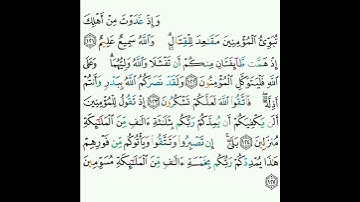 وَإِذْ غَدَوْتَ مِنْ أَهْلِكَ
تُبَوِّئُ ٱلْمُؤْمِنِينَ مَقَٰعِدَ لِلْقِتَالِ ۗ وَٱللَّهُ سَمِيعٌ عَلِيمٌ ١٢١
إِذْ هَمَّت طَّآئِفَتَانِ مِنكُمْ أَن تَفْشَلَا وَٱللَّهُ وَلِيُّهُمَا ۗ وَعَلَى
ٱللَّهِ فَلْيَتَوَكَّلِ ٱلْمُؤْمِنُونَ ١٢٢ وَلَقَدْ نَصَرَكُمُ ٱللَّهُ بِبَدْرٍ وَأَنتُمْ
أَذِلَّةٌ ۖ فَٱتَّقُوا۟ ٱللَّهَ لَعَلَّكُمْ تَشْكُرُونَ ١٢٣ إِذْ تَقُولُ لِلْمُؤْمِنِينَ
أَلَن يَكْفِيَكُمْ أَن يُمِدَّكُمْ رَبُّكُم بِثَلَٰثَةِ ءَالَٰفٍ مِّنَ ٱلْمَلَٰٓئِكَةِ
مُنزَلِينَ ١٢٤ بَلَىٰٓ ۚ إِن تَصْبِرُوا۟ وَتَتَّقُوا۟ وَيَأْتُوكُم مِّن فَوْرِهِمْ
هَٰذَا يُمْدِدْكُمْ رَبُّكُم بِخَمْسَةِ ءَالَٰفٍ مِّنَ ٱلْمَلَٰٓئِكَةِ مُسَوِّمِينَ
١٢٥